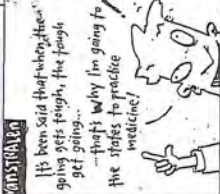 VANSTRALEN
It's been said that when the
going gets tough, the tough
get going...
—that's why I'm going to
the states to practice
medicine!